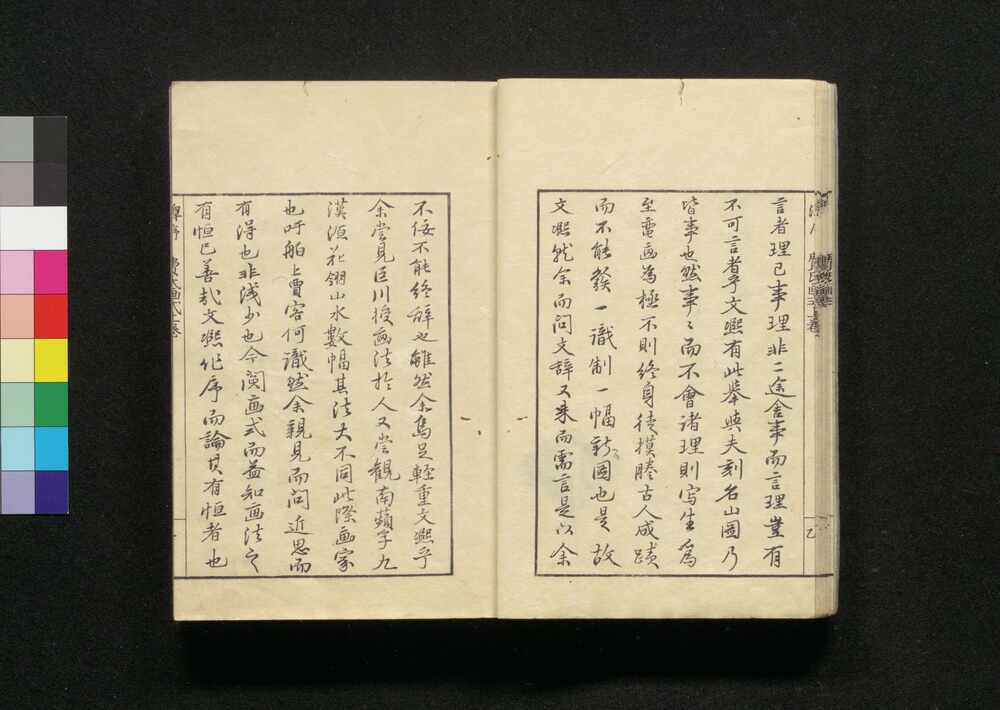 言者理已事理非二途舍事而言理豈有
不可言者乎文熈有此舉與夫刻名山圖乃
皆事也然事〻而不會諸理則写生爲
至電画為極不則終身徒摸謄古人成蹟
而不能發一識制一幅新圖也是故
文熈就余而問文辞又来而需言是以余
不佞不能終辞也雖然余烏足輕重文熈乎
余嘗見巨川授画法於人又嘗観南蘋子九
漢源花翎山水數幅其法大不同此際画家
也吁舶上賈客何識然余親見而問近思而
有得也非浅少也今閲画式而益知画法之
有恒已善哉文熈作序而論其有恒者也